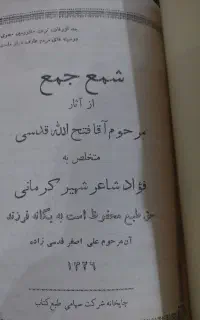 شمع جمع
از آثار
مرحوم آقا فتح الله قدسی
متخلص به
فؤاد شاعر شهیر کرمانی
حق طبع محفوظ است به یگانه فرزند
آن مرحوم علی اصغر قدسی زاده
۱۳۲۶
چاپخانه شرکت سهامی طبع کتاب